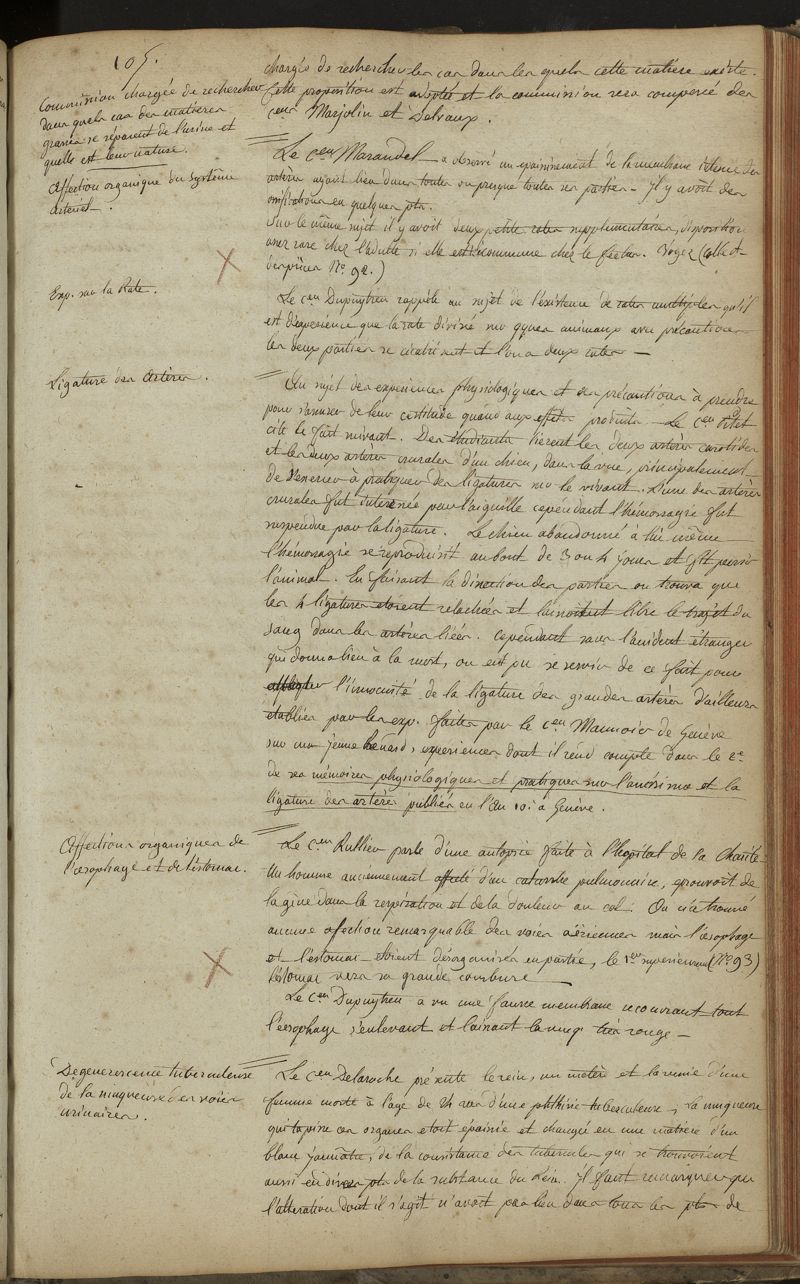 105.
Commission chargée de rechercher
dans quels cas des matières
grasses se séparent de l'urine et
quelle est leur nature.
chargés de rechercher les cas dans lesquels cette matière existe.
Cette proposition est adoptée et la commission sera composée des
Cens Marjolin et Delvaux.
Affection organique du système
artériel.
Le Cen Marandel a observé un épaississement de la membrane interne des
artères ayant lieu dans toutes ou presque toutes ses parties — Il y avoit des
ossifications en quelques pts.
Sur le même sujet il y avoit deux petites rates supplémentaires, disposition
assez rare chez l'adulte si elle est commune chez le foetus. Voyez (collect
des pièces No. 92.)
Exp. sur la Rate.
Le Cen Dupuytren rappèle au sujet de l'existence de rates multiples qu'il
est d'expérience que la rate divisé sur qques animaux avec précaution
les deux parties se cicatrisent et l'on a deux rates —
Ligature des Artères.
Au sujet des expériences physiologiques et des précautions à prendre
pour s'assurer de leur certitude quand aux effets produits — Le Cen
cite le fait suivant. Des étudiants lièrent les deux artères carotides
et les deux artères crurales d'un chien, dans la vue, principalement
de s'exercer à pratiquer des ligatures sur le vivant. L'une des artères
crurales fut intéressée par l'aiguille cependant l'hémorragie fut
suspendue par la ligature. Le chien abandonné à lui même
l'hémorragie se reproduisit au bout de 3 ou 4 jours et fit périr
l'animal. En faisant la dissection des parties on trouva que
les 4 ligatures étoient relachées et laissoient libre le trajet du
sang dans les artères liées. Cependant sans l'accident étranger
qui donna lieu à la mort, on eut pu se servir de ce fait pour
l'innocuité de la ligature des grandes artères d'ailleurs
établies par les exp. faites par le Cen Maunoir de Genève
sur un jeune Renard, expériences dont il rend compte dans le 2e
de ses mémoires physiologiques et pratiques sur l'anévrisme et la
ligature des artères publiés en l'an 10. à Genève.
Affections organiques de
l'oesophage et de l'estomac.
Le Cen Rullier parle d'une autopsie faite à l'hopital de la Charité
Un homme anciennement affecté d'un catarrhe pulmonaire, eprouvoit de
la gêne dans la respiration et de la douleur au col. On n'a trouvé
aucune affection remarquable des voies aériennes mais l'oesophage
et l'estomac étoient désorganisés en partie, le 1er supérieurement (No. 93)
l'estomac vers sa grande courbure
Le Cen Dupuytren a vu une fausse membrane recouvrant tout
l'oesophage s'enlevant et laissant la muqe très rouge —
Dégénérescence tuberculeuse
de la muqueuse des voies
urinaires.
Le Cen Delaroche présente le rein, un uretère et la vessie d'une
femme morte à l'age de 24 ans d'une phthisie tuberculeuse, la muqueuse
qui tapisse ces organes etoit épaissie et changée en une matière d'un
blanc jaunâtre, de la consistance des tubercules qui se trouvoient
aussi en divers pts de la substance du Rein. Il faut remarquer que
l'altération dont il s'agit n'avoit pas lieu dans tous les pts de